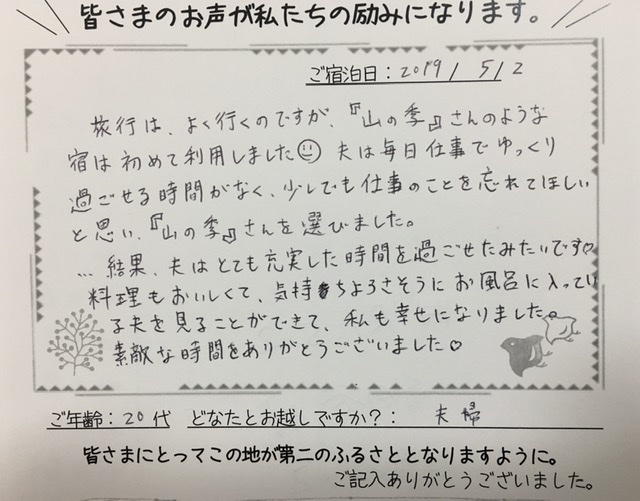 皆さまのお声が私たちの励みになります。
ご宿泊日：2019 / 5 / 2
旅行は、よく行くのですが、『山の季』さんのような
宿は初めて利用しました☺ 夫は毎日仕事でゆっくり
過ごせる時間がなく、少しでも仕事のことを忘れてほしい
と思い、『山の季』さんを選びました。
… 結果、夫はとても充実した時間を過ごせたみたいです♡
料理もおいしくて、気持ちよさそうにお風呂に入ってい
る夫を見ることができて、私も幸せになりました。
素敵な時間をありがとうございました♡
ご年齢：20代 どなたとお越しですか？： 夫婦
皆さまにとってこの地が第二のふるさととなりますように。
ご記入ありがとうございました。